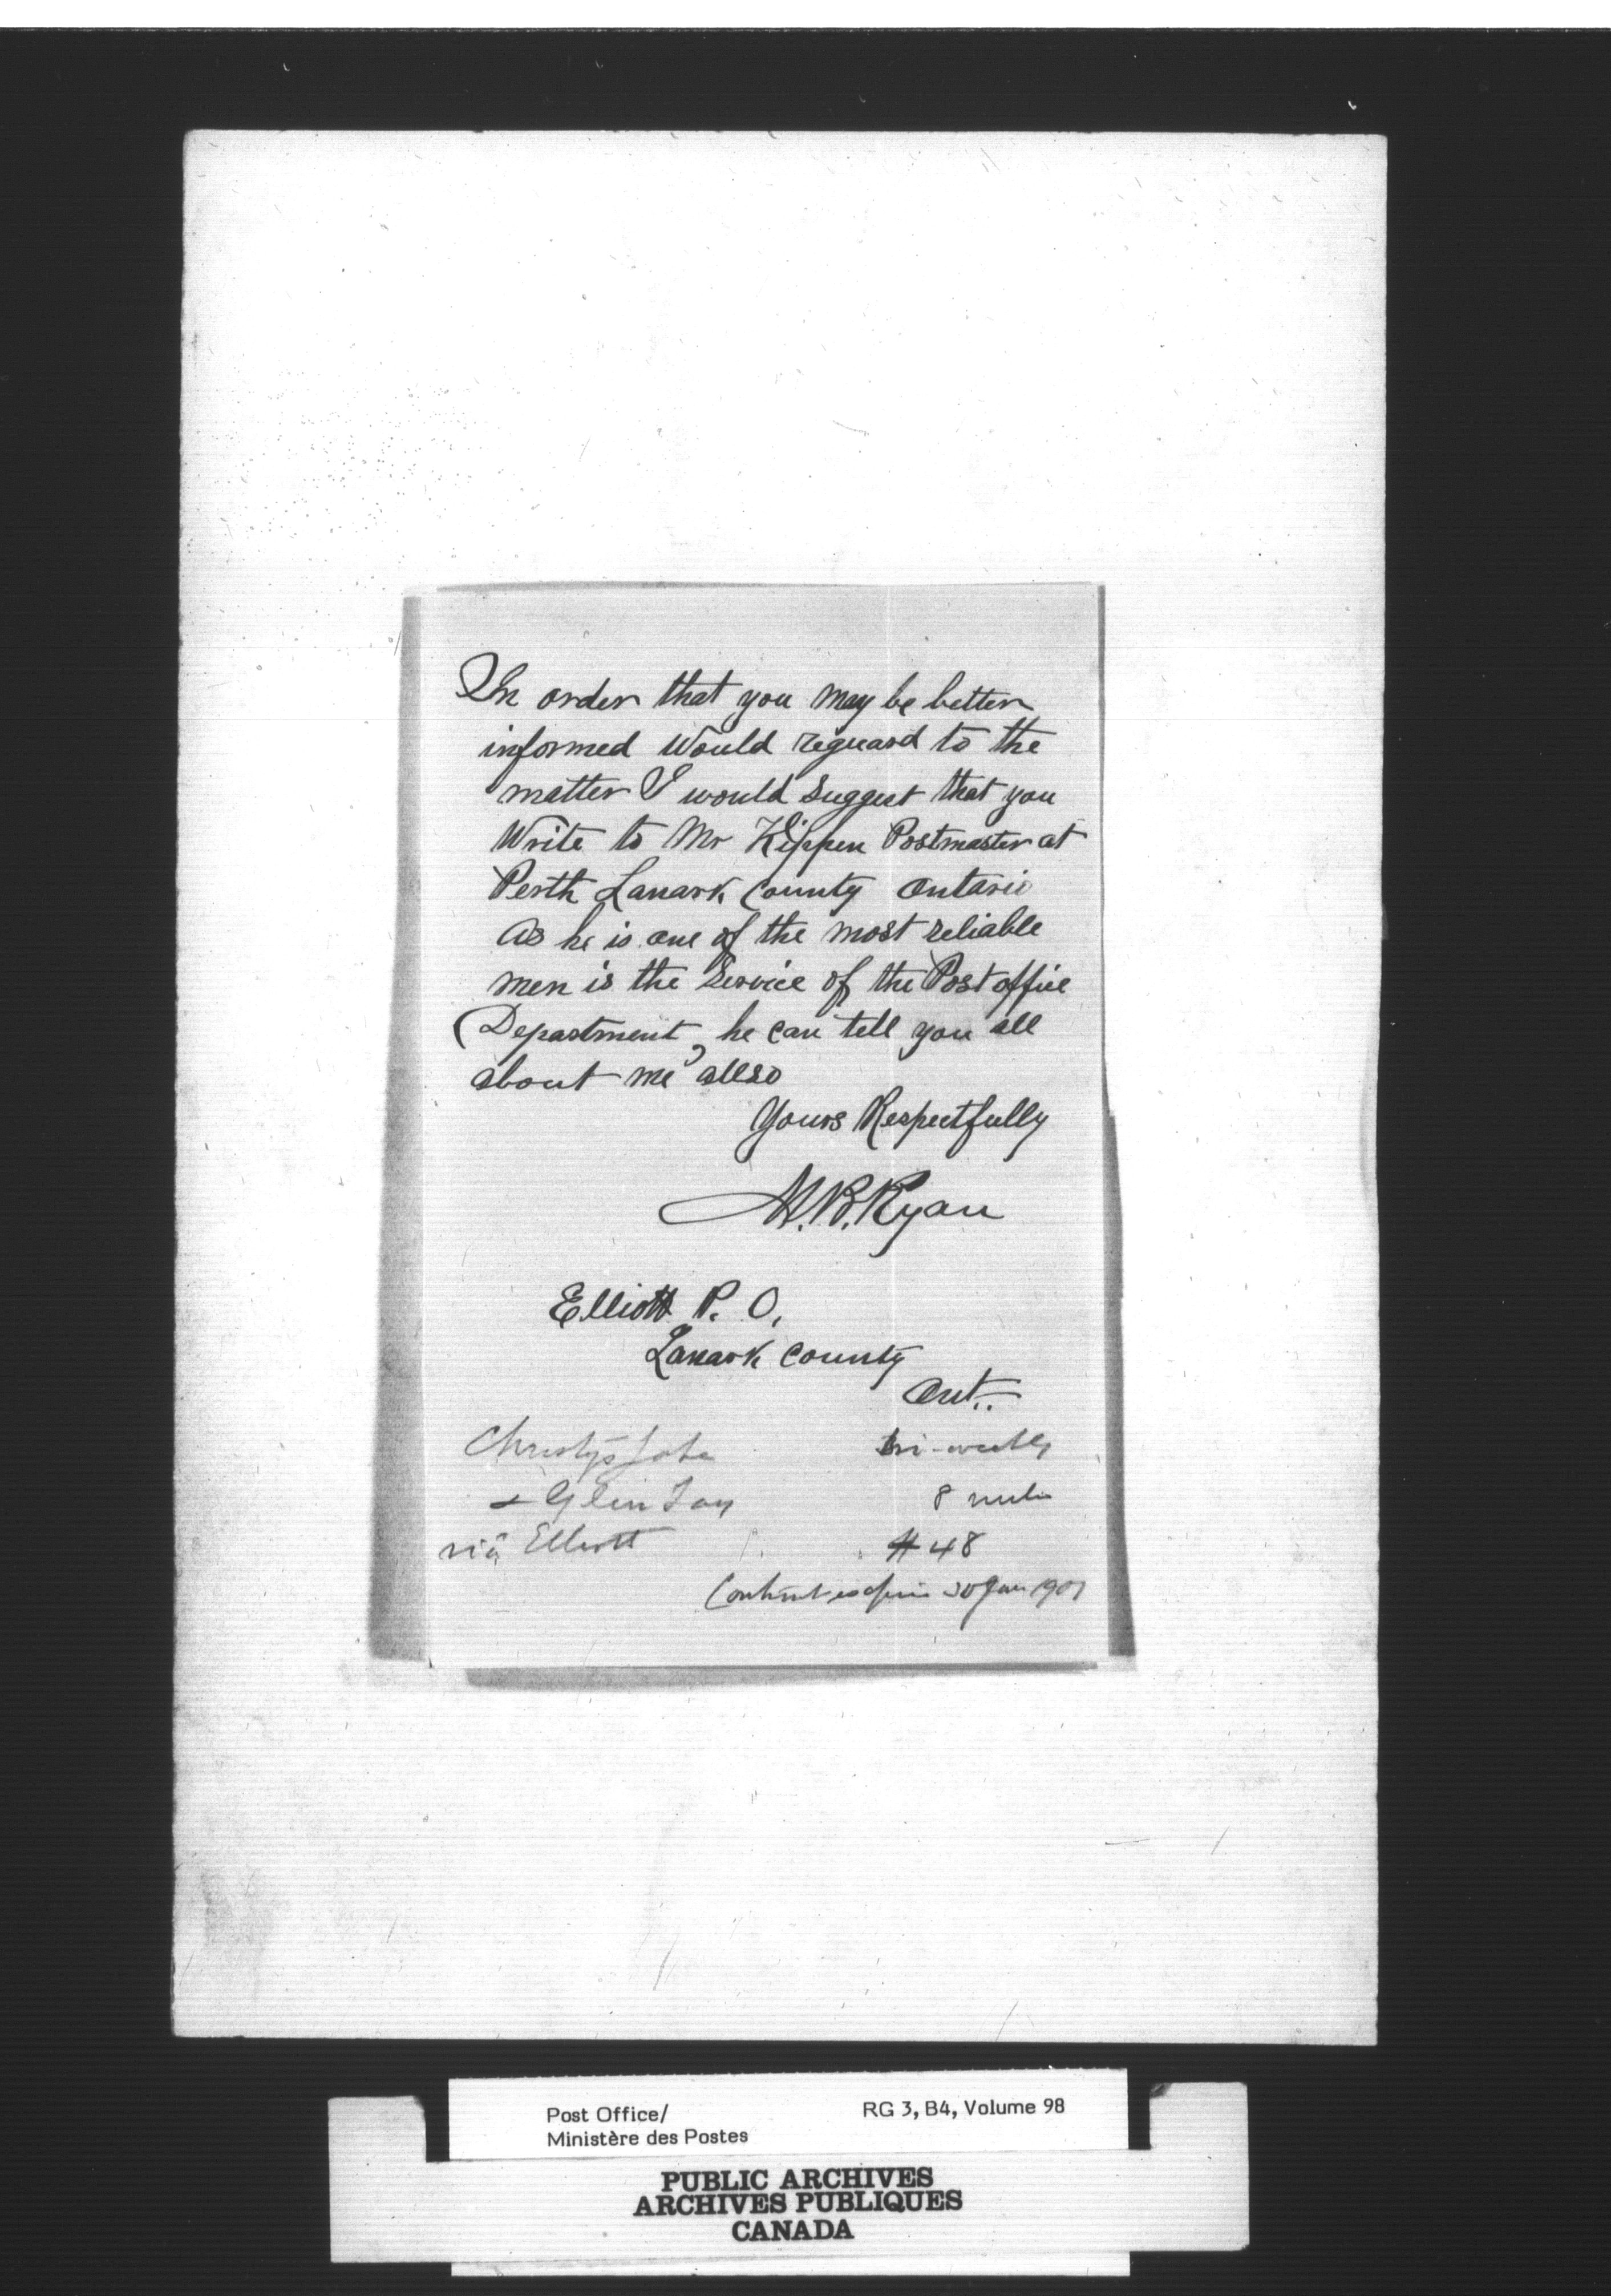 In order that you may be better
informed would reguard to the
matter I would suggest that you
Write to Mr Kippen Postmaster at
Perth Lanark County Ontario
As he is one of the most reliable
men is the service of the Post office
Department, he can tell you all
about me allso
Yours Respectfully
M.B. Ryan
Elliott P. O.
Lanark County
Ont..
Christy's Lake tri-weekly
& Glen Tay 8 miles
via Elliott # 48
Contract expires 30 1901
Post Office/ RG 3, B4, Volume 98
Ministère des Postes
PUBLIC ARCHIVES
ARCHIVES PUBLIQUES
CANADA